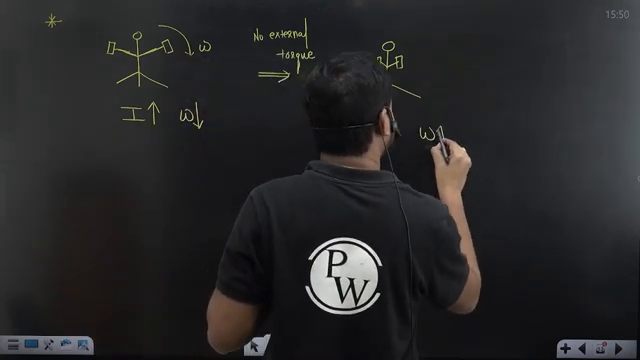 15:50
*
ω
No external
torque
⇒
I↑ ω↓
ω
P
W